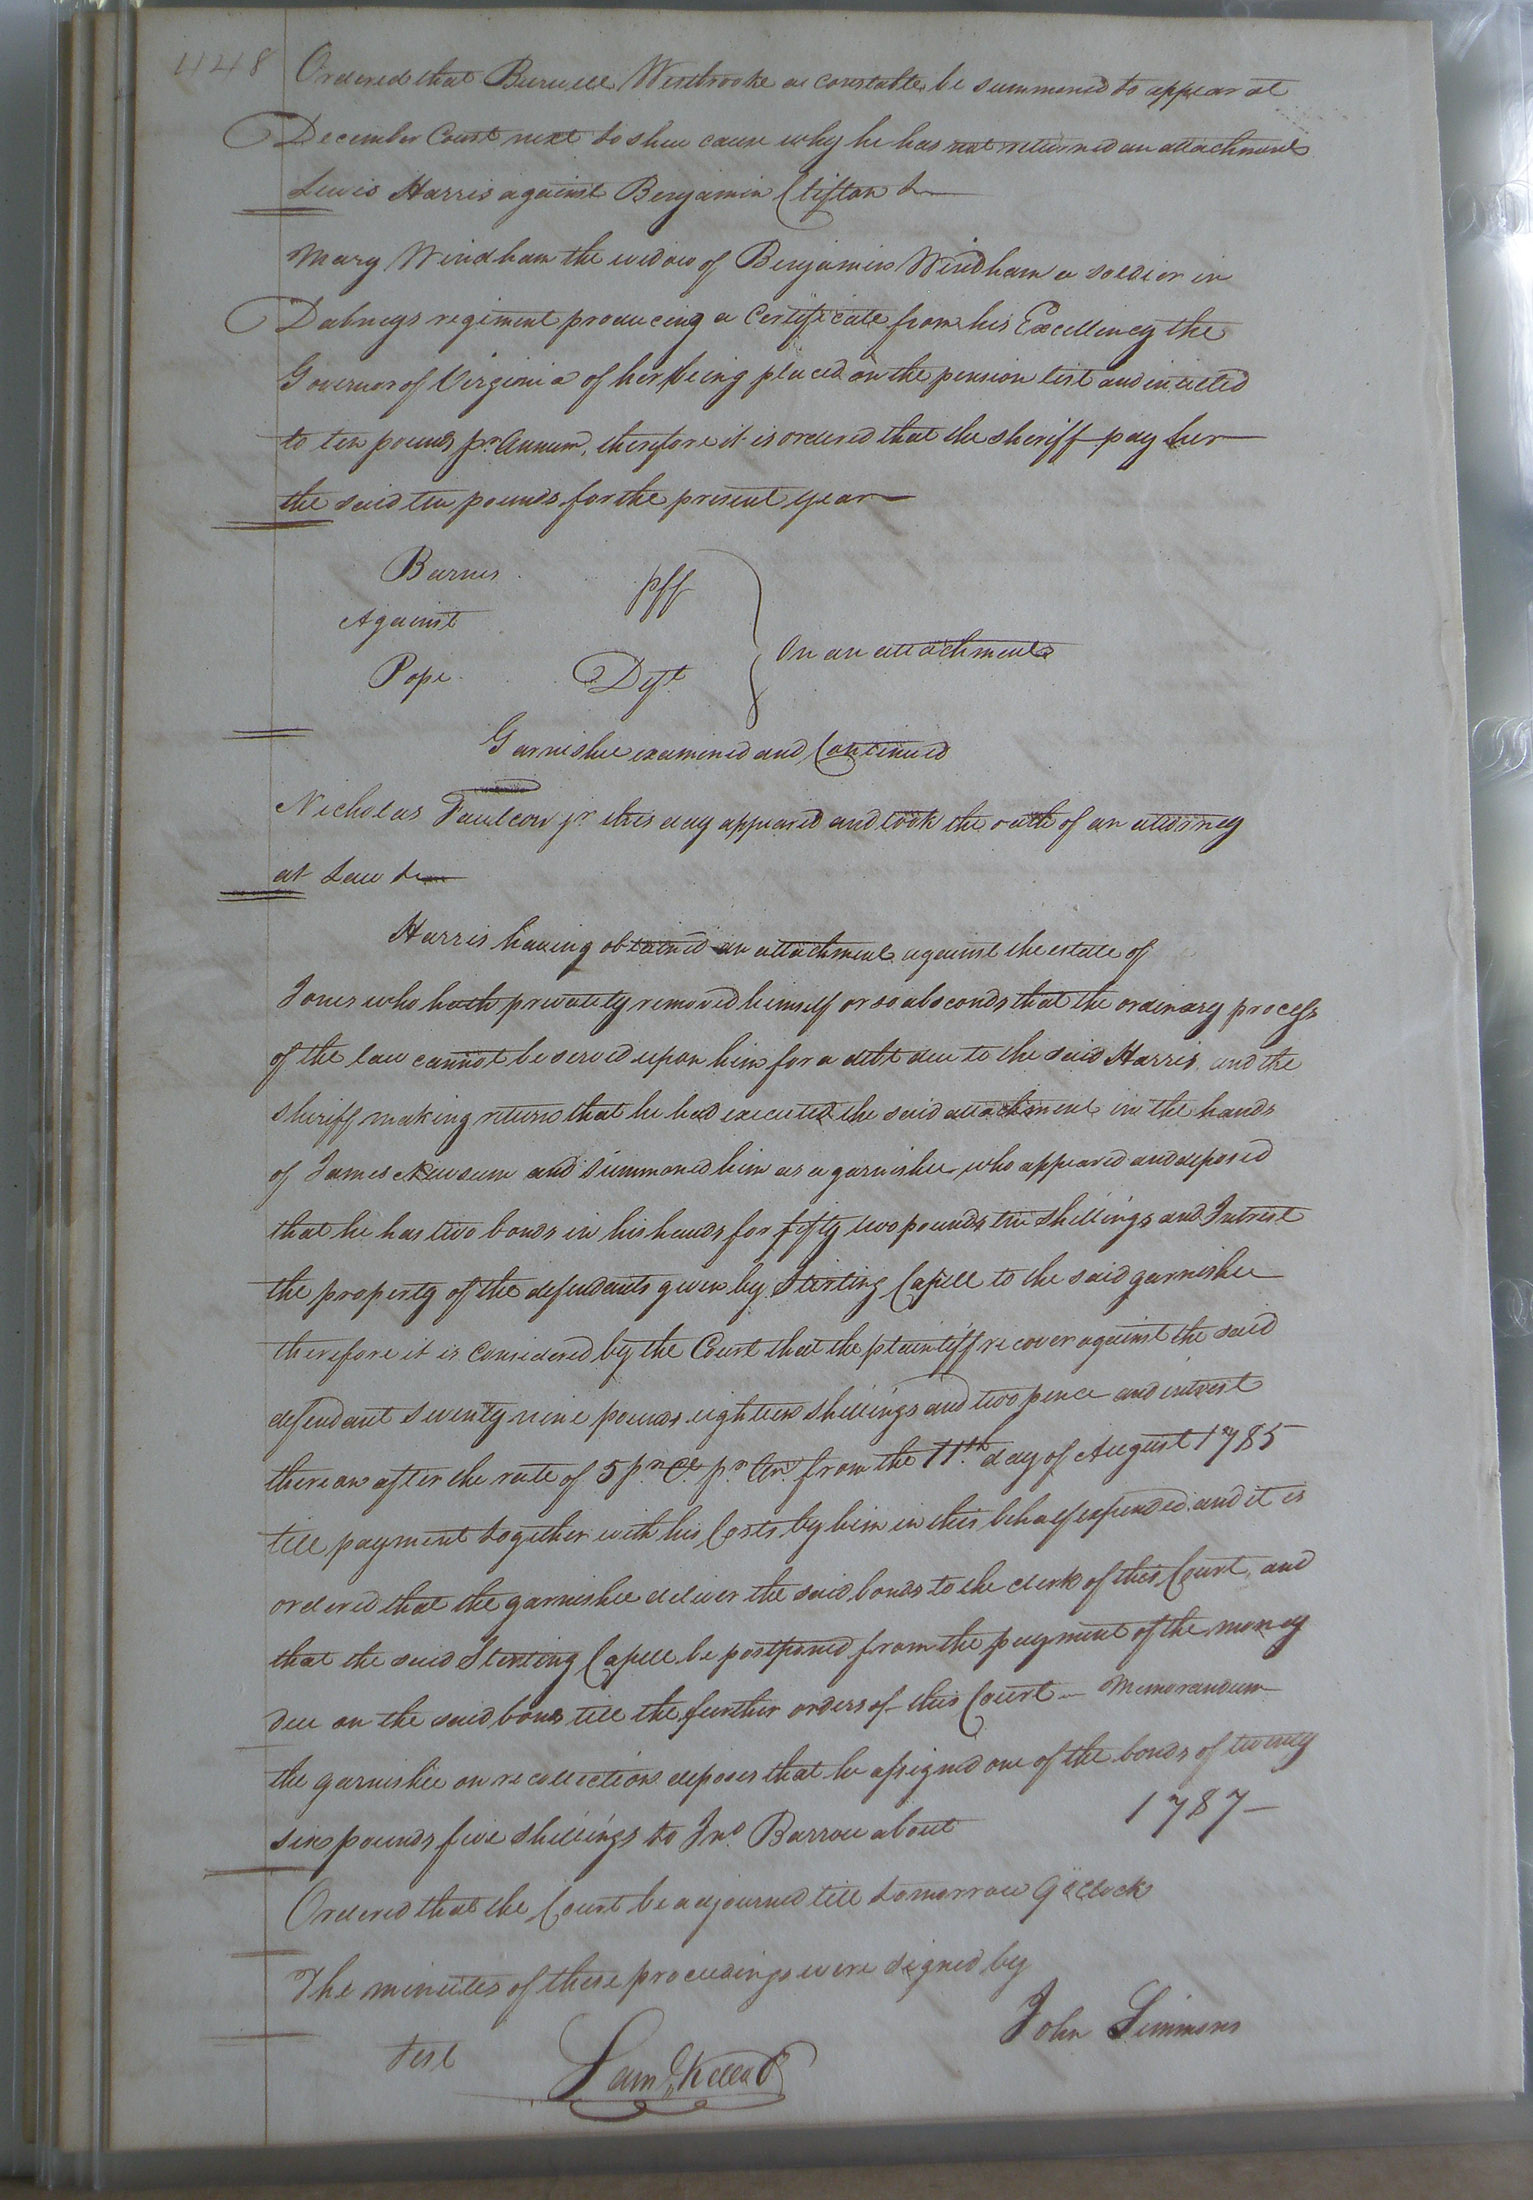 448
Ordered that Burwell Westbrooke a constable be summoned to appear at
December Court next to shew cause why he has not returned an attachment
Lewis Harris against Benjamin Clifton &
Mary Windham the widow of Benjamin Windham a soldier in
Dabneys regiment producing a Certificate from his Excellency the
Governor of Virginia of her being placed on the pension list and intitled
to ten pounds pr. Annum, therefore it is ordered that the sheriff pay her
the said ten pounds for the present year
Barnes plf
Against
Pope Deft
On an attachment
Garnishee examined and Continued
Nicholas Faulcon jr. this day appeared and took the oath of an attorney
at Law &
Harris having obtained an attachment against the estate of
Jones who hath privately removed himself or so absconds that the ordinary process
of the law cannot be served upon him for a debt due to the said Harris and the
sheriff making return that he had executed the said attachment in the hands
of James Newsum and summoned him as a garnishee who appeared and deposed
that he has two bonds in his hands for fifty two pounds ten shillings and Intrest
the property of the defendants given by Sterling Capell to the said garnishee
therefore it is considered by the Court that the plaintiff recover against the said
defendant seventy nine pounds eighteen shillings and two pence and intrest
thereon after the rate of 5 pr Ct. pr. An. from the 11th. day of August 1785
till payment together with his Costs by him in this behalf expended and it is
ordered that the garnishee deliver the said bonds to the clerk of this Court and
that the said Sterling Capell be postponed from the payment of the money
due on the said bonds till the further orders of this Court - Memorandum
the garnishee on recollection deposes that he assigned one of the bonds of twenty
six pounds five shillings to Jno. Barrow about 1787 -
Ordered that the Court be adjourned till tomorrow 9 oClock
The minutes of these proceedings were signed by
John Simmons
Test
Saml. Kello